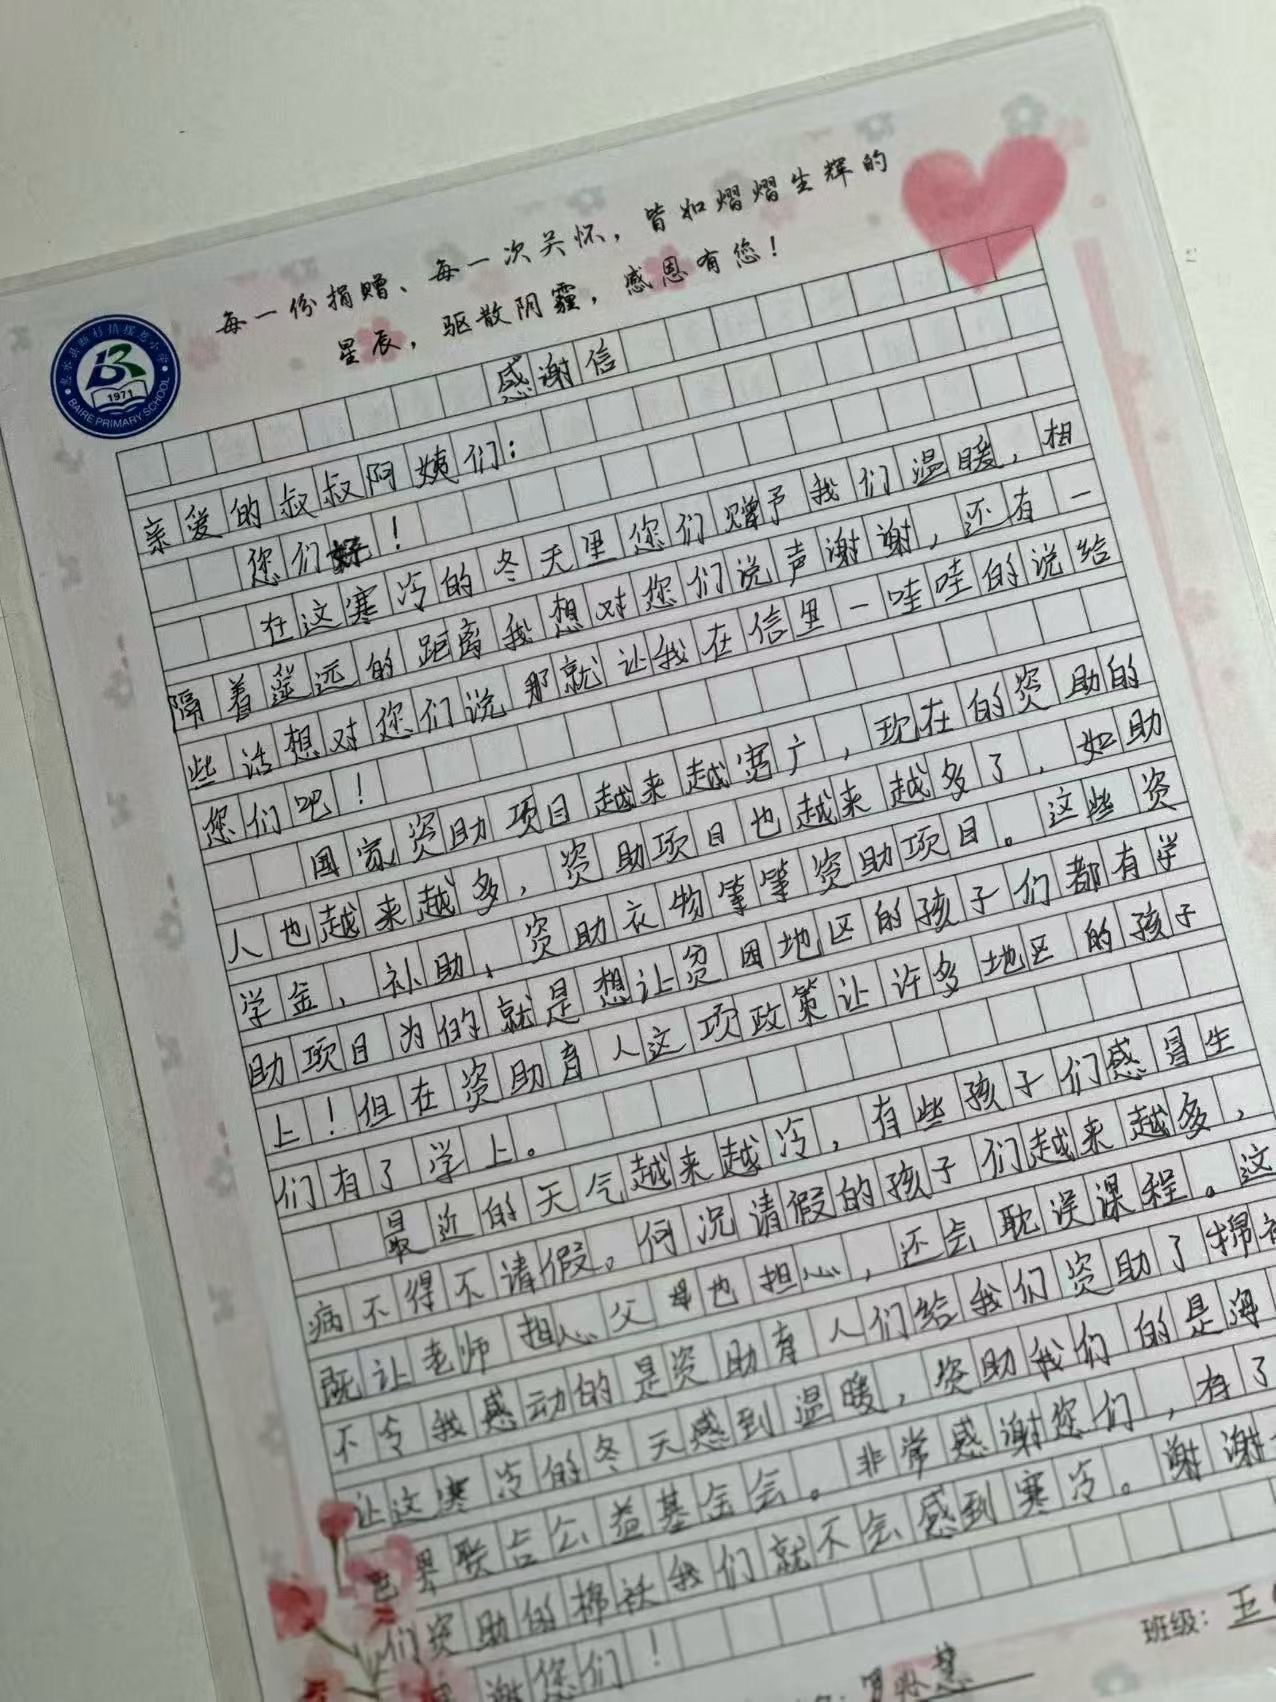 每一份捐赠、每一次关怀，皆如熠熠生辉的
星辰，驱散阴霾，感恩有您！
1971
BAIRE PRIMARY SCHOOL
感谢信
亲爱的叔叔阿姨们：
您们好！
在这寒冷的冬天里您们赠予我们温暖，相
隔着遥远的距离我想对您们说声谢谢，还有一
些话想对您们说那就让我在信里一哇哇的说给
您们吧！
国家资助项目越来越宽广，现在的资助的
人也越来越多，资助项目也越来越多了，如助
学金、补助、资助衣物等等资助项目。这些资
助项目为的就是想让贫困地区的孩子们都有学
上！但在资助育人这项政策让许多地区的孩子
们有了学上。
最近的天气越来越冷，有些孩子们感冒生
病不得不请假。何况请假的孩子们越来越多，
既让老师担心父母也担心，还会耽误课程。这
不令我感动的是资助育人们给我们资助了棉
让这寒冷的冬天感到温暖，资助我们的是海
联合公益基金会。非常感谢您们，有了
们资助的棉袄我们就不会感到寒冷。谢谢
谢您们！
班级：五